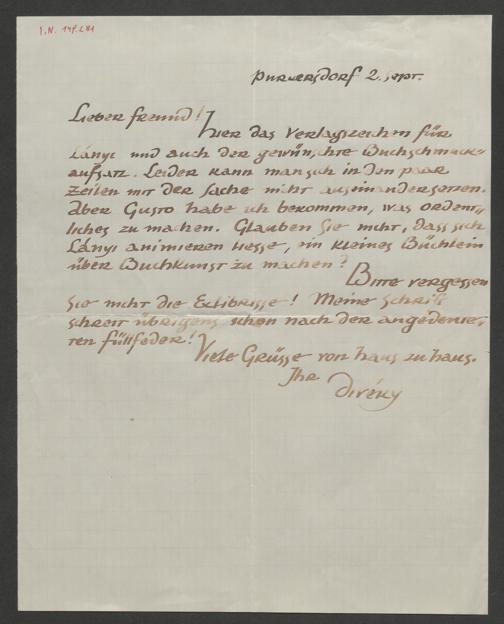 I.N. 149.281
Purkersdorf 2. Sept.
Lieber Freund!
Hier das Verlagszeichen für
Lányi und auch der gewünschte Buchschmuck-
aufsatz. Leider kann man sich in den paar
Zeilen mit der Sache nicht auseinandersetzen.
Aber Gusto habe ich bekommen, was ordent-
liches zu machen. Glauben Sie nicht, dass sich
Lányi animieren liesse, ein kleines Büchlein
über Buchkunst zu machen?
Bitte vergessen
Sie nicht die Exlibrisse! Meine Schrift
schreit übrigens schon nach der angedeute-
ten Füllfeder!
Viele Grüsse von Haus zu Haus.
Ihr
Divéky